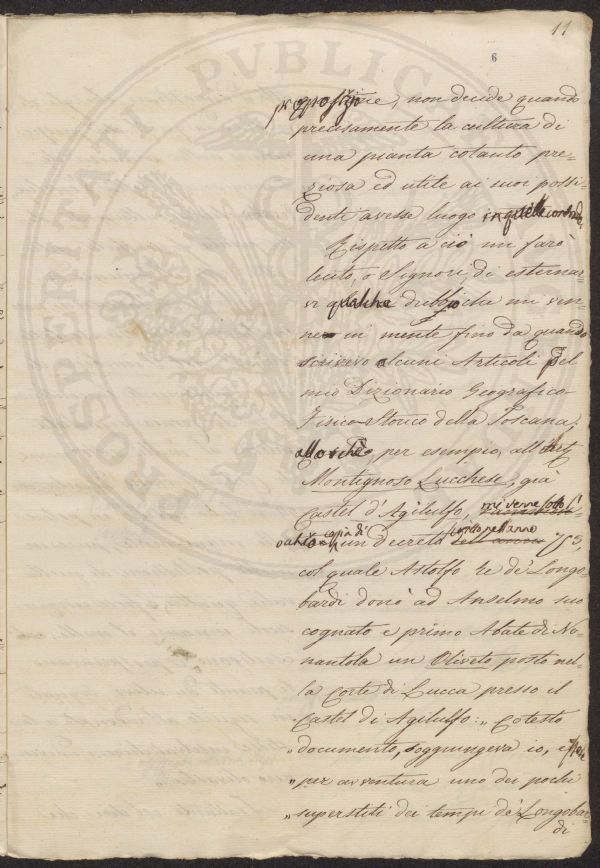 11
6
proposizione, non decide quando
precisamente la cultura di
una pianta cotanto pre-
ziosa ed utile ai suoi possi-
denti avesse luogo in quelle contrade.
Rispetto a ciò mi farò
lecito, o Signori, di esternar-
vi qualche dubbio che mi ven-
ne in mente fino da quando
scrivevo alcuni Articoli del
mio Dizionario Geografico
Fisico-Storico della Toscana,
allorchè, per esempio, all'Art.
Montignoso Lucchese, già
Castel d'Agilulfo, mi venne sotto l'
occhio copia di un decreto scritto nell'anno 753,
col quale Astolfo Re de' Longo-
bardi donò ad Anselmo suo
cognato e primo Abate di No-
nantola un Oliveto posto nel-
la Corte di Lucca presso il
Castel di Agilulfo: „ Cotesto
„ documento, soggiungeva io, è
„ per avventura uno dei pochi
„ superstiti dei tempi de' Longobar-
di
PROSPERITATI PUBLICAE